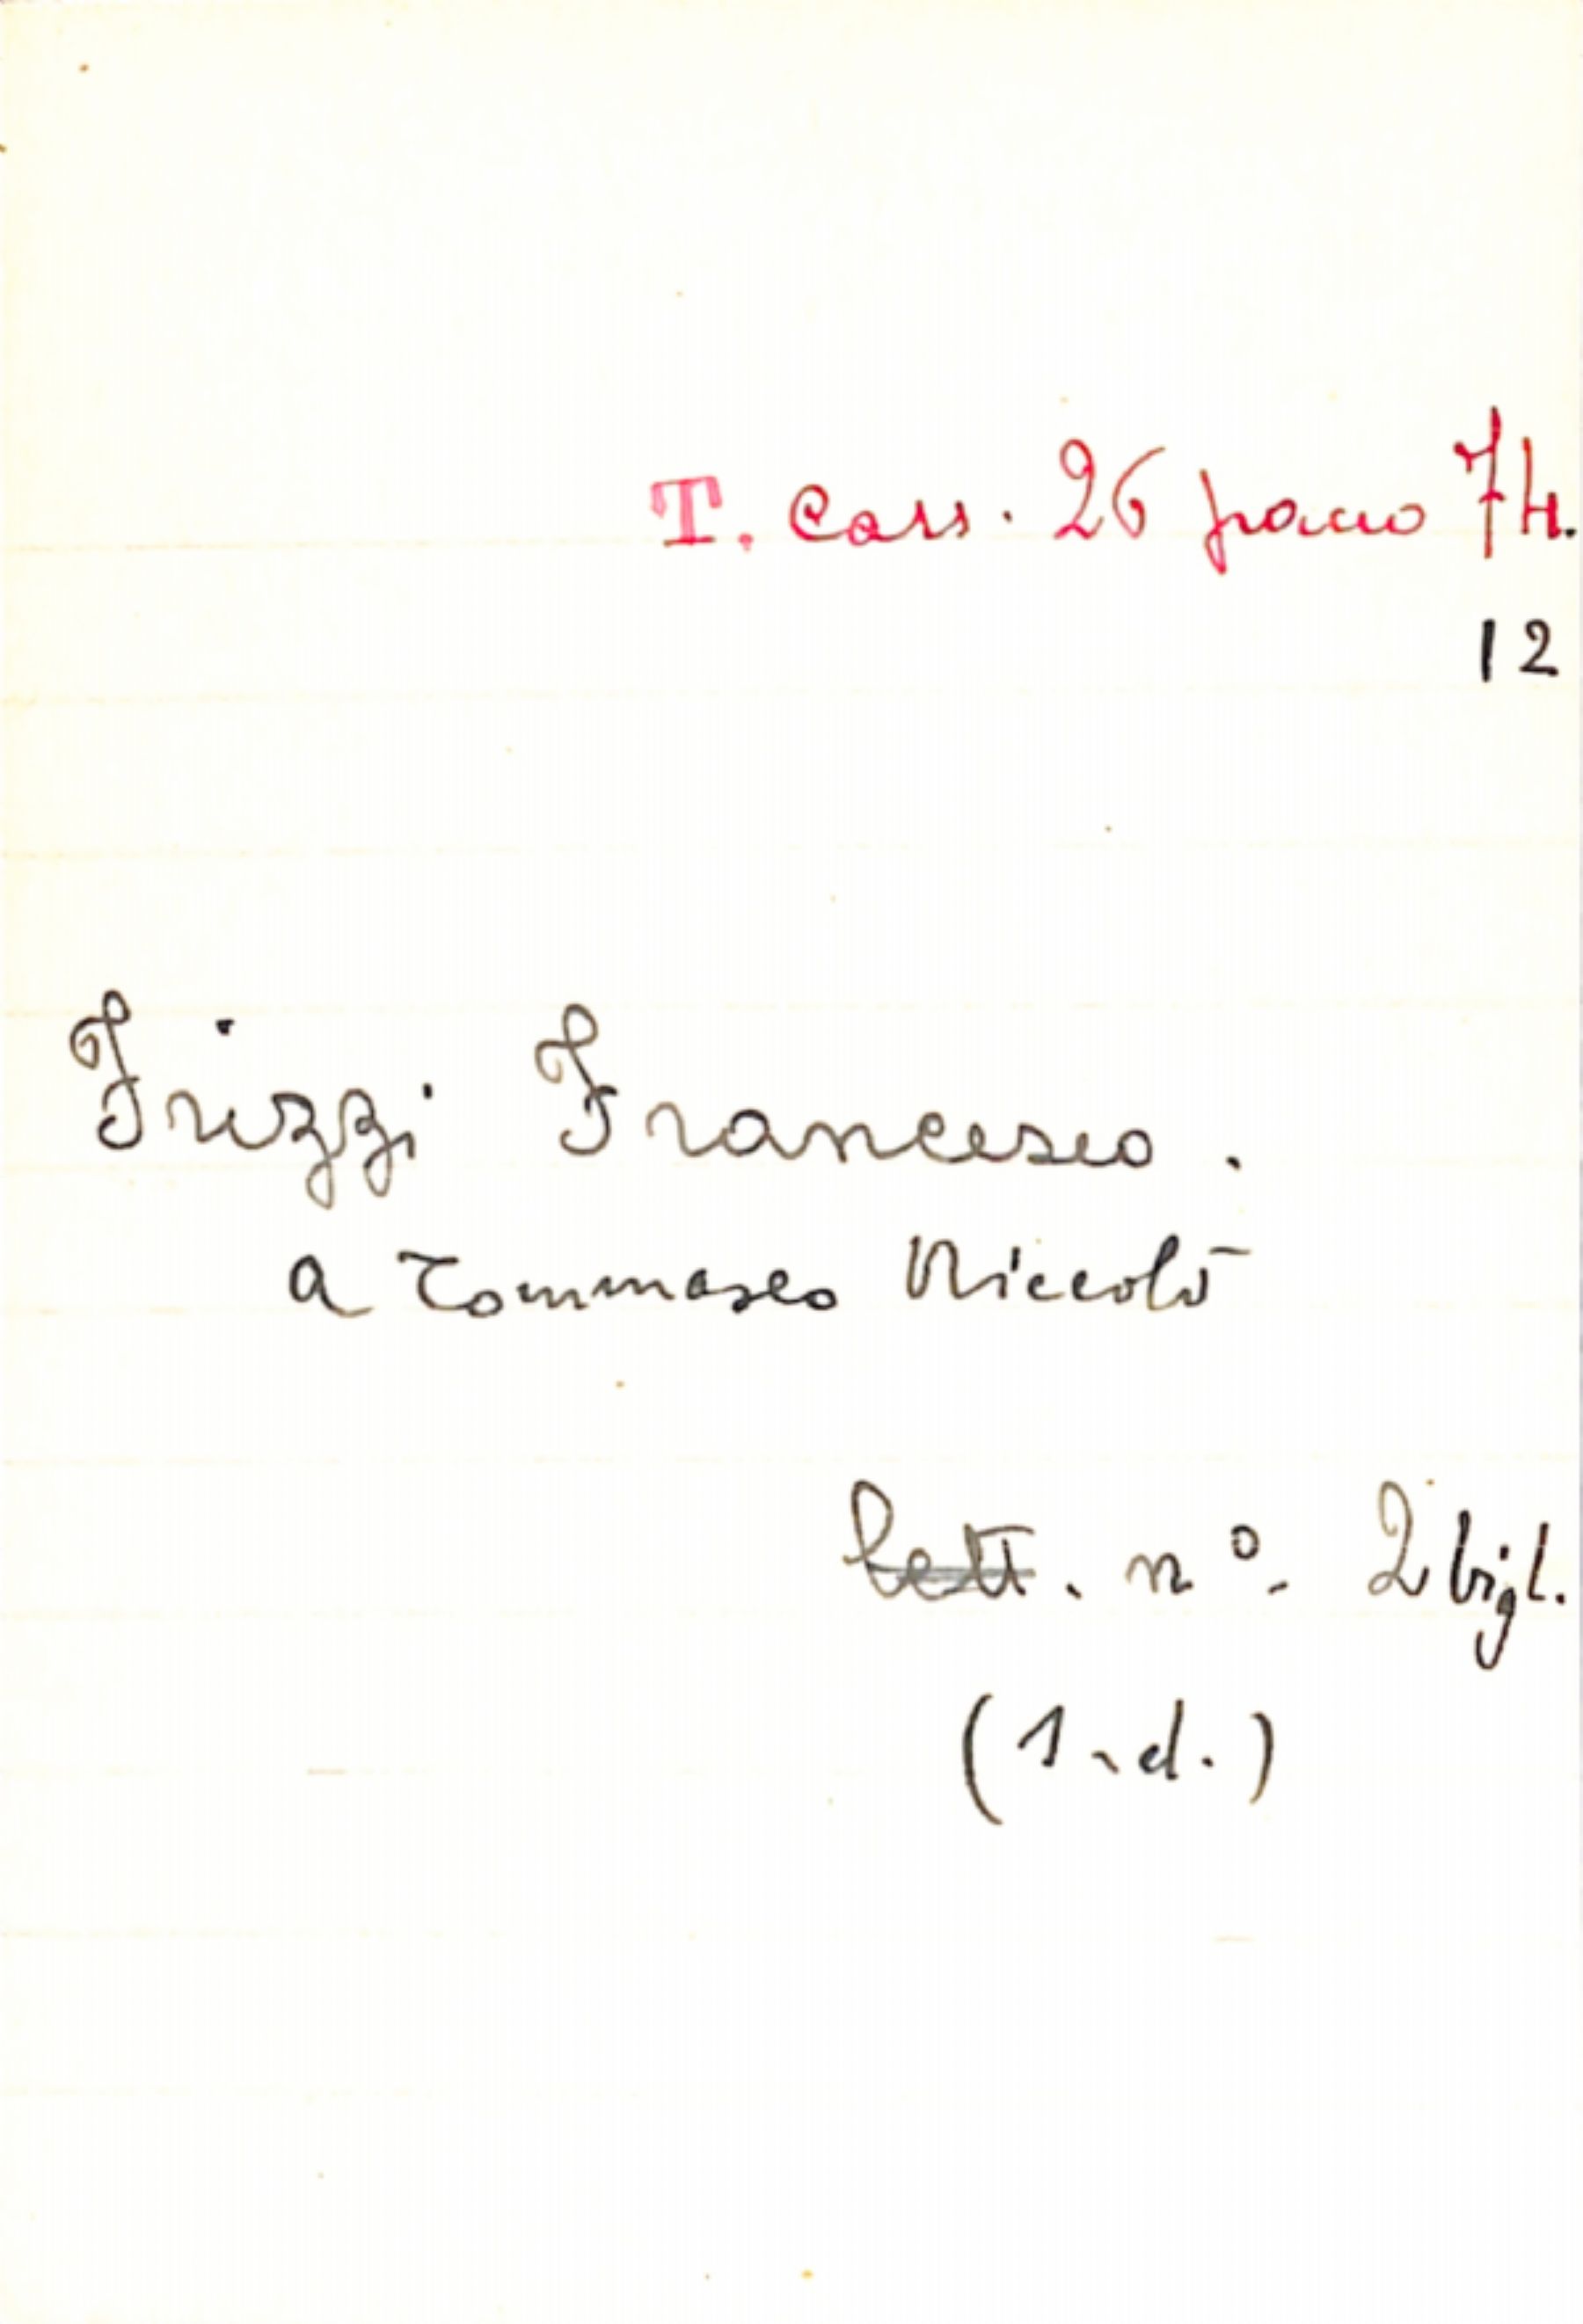 T. Cass. 26 pacco 74.
12
Frizzi Francesco.
a Tommaseo Niccolò
Lett. n°. 2 bigl.
(1 s.d.)